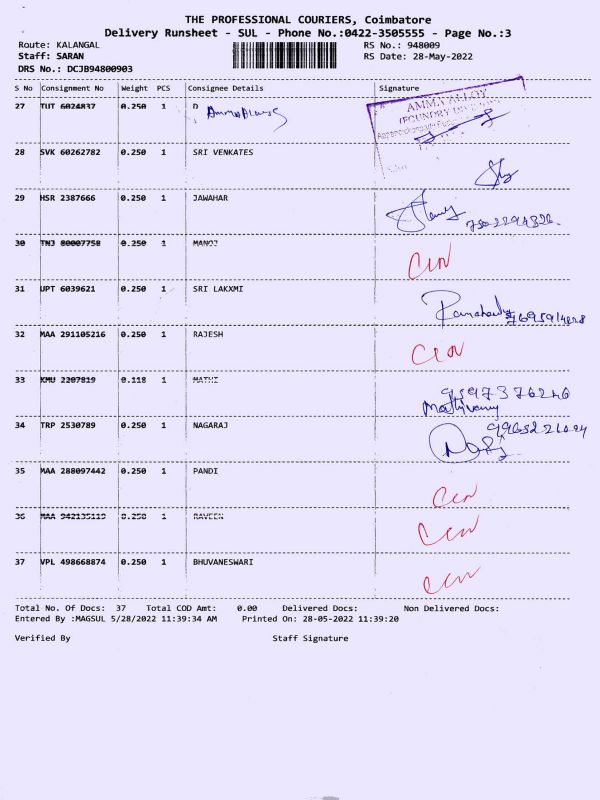 THE PROFESSIONAL COURIERS, Coimbatore
Delivery Runsheet - SUL - Phone No.:0422-3505555 - Page No.:3
Route: KALANGAL RS No.: 948009
Staff: SARAN RS Date: 28-May-2022
DRS No.: DCJB94800903
S No Consignment No Weight PCS Consignee Details Signature
27 TUT 6024837 0.250 1 D
AMMA ALLOY
28 SVK 60262782 0.250 1 SRI VENKATES
29 HSR 2387666 0.250 1 JAWAHAR
30 TNJ 80007758 0.250 1 MANOJ
31 UPT 6039621 0.250 1 SRI LAKXMI
32 MAA 291105216 0.250 1 RAJESH
33 KMU 2207819 0.118 1 MATHI
9597376246
34 TRP 2530789 0.250 1 NAGARAJ
35 MAA 288097442 0.250 1 PANDI
36 MAA 942135119 0.250 1 RAVEEN
37 VPL 498668874 0.250 1 BHUVANESWARI
Total No. Of Docs: 37 Total COD Amt: 0.00 Delivered Docs: Non Delivered Docs:
Entered By :MAGSUL 5/28/2022 11:39:34 AM Printed On: 28-05-2022 11:39:20
Verified By Staff Signature